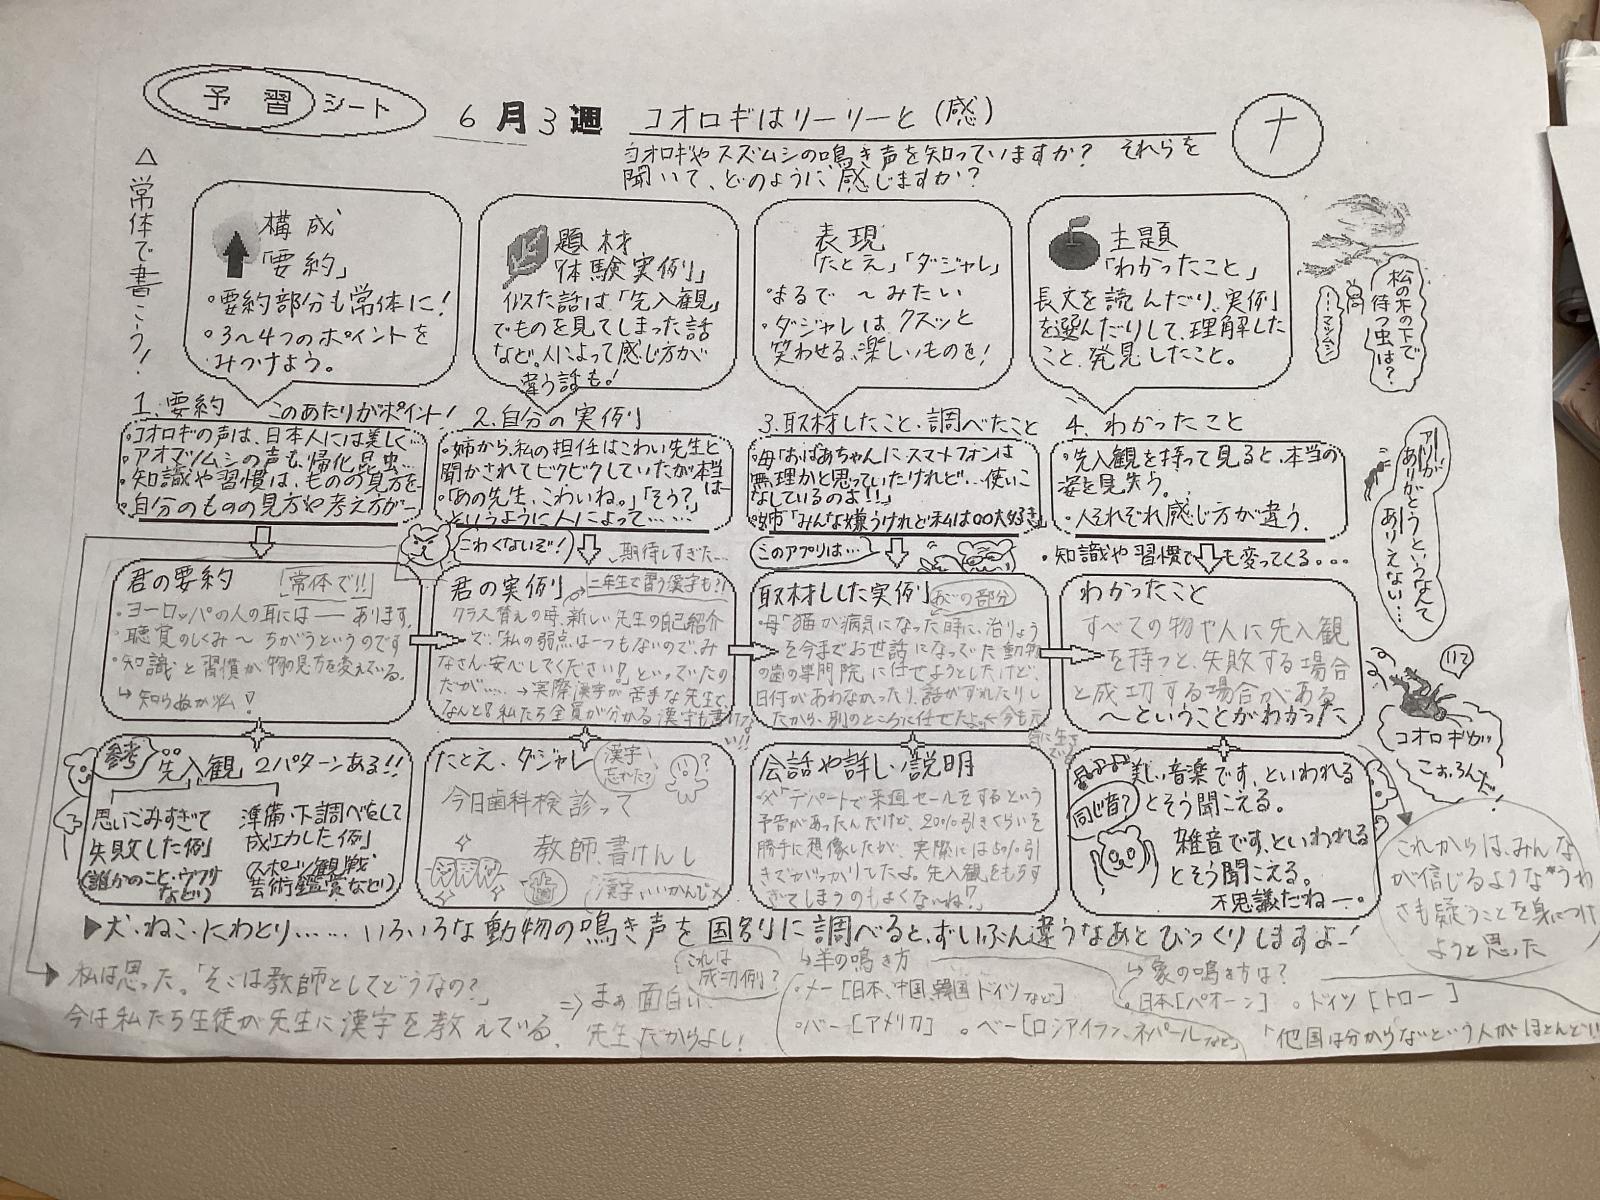 予習シート
6月3週 コオロギはリーリーと(感)
ナ
コオロギやスズムシの鳴き声を知っていますか? それらを
聞いて、どのように感じますか?
△常体で書こう!
構成
「要約」
・要約部分も常体に!
・3〜4つのポイントを
みつけよう。
題材
「体験実例」
似た話は「先入観」
でものを見てしまった話
など。人によって感じ方が
違う話も!
表現
「たとえ」「ダジャレ」
・まるで〜みたい
・ダジャレはクスッと
笑わせる、楽しいものを!
主題
「わかったこと」
長文を読んだり、実例
を選んだりして、理解した
こと、発見したこと。
松の木の下で
待つ虫は?
マツムシ
1.要約 このあたりがポイント!
・コオロギの声は、日本人には美しく…
・アオマツムシの声も、帰化昆虫…
・知識や習慣は、ものの見方を
・自分のものの見方や考え方が―
2.自分の実例
・姉から、私の担任はこわい先生と
聞かされてビクビクしていたが本当は
・「あの先生、こわいね。」「そう?」
というように人によって……
3.取材したこと・調べたこと
・母「おばあちゃんにスマートフォンは
無理かと思っていたけれど…使いこ
なしているのよ!!」
・姉「みんな嫌うけれど私は○○大好き」
4.わかったこと
・先入観を持って見ると、本当の
姿を見失う。
・人それぞれ感じ方が違う。
・知識や習慣でも変ってくる…
アリが
ありがとうというなんて
ありえない…
こわくないぞ!
期待しすぎた…
このアプリは…
君の要約 常体で!!
・ヨーロッパの人の耳には――あります。
・聴覚のしくみ〜ちがうというのです
・知識と習慣が物の見方を変えている。
↳知らぬが仏!
君の実例 二年生で習う漢字も?!
クラス替えの時、新しい先生の自己紹介
で、「私の弱点は一つもないので、み
なさん安心してください!」といっていたの
だが……→実際漢字が苦手な先生で、
なんと!私たち全員が分かる漢字も書けな
い!!
取材しした実例
・母「猫が病気になった時に、治りょう
を今までお世話になっていた動物
の歯の専門院に任せようとしたけど、
日付があわなかったり、話がずれたりし
たから、別のところに任せたよ
わかったこと
すべての物や人に先入観
を持つと、失敗する場合
と成功する場合がある
〜ということがわかった
117
コオロギが
こおろんだ!
参考
先入観 2パターンある!!
思いこみすぎて
失敗した例
(誰かのこと、ウワサ
など)
準備・下調べをして
成功した例
(スポーツ観戦
芸術鑑賞など)
たとえ、ダジャレ
漢字、
忘れた?
今日歯科検診って
教師、書けんし
歯
会話や詳しい説明
・父「デパートで来週セールをするという
予告があったんだけど、20%引きくらいを
勝手に想像したが、実際には5%引
きでがっかりしてたよ。先入観をもちす
ぎてしまうのもよくないね?」
同じ音?
美しい音楽です、といわれる
とそう聞こえる。
雑音です、といわれる
とそう聞こえる。
不思議だねー。
これからは、みんな
が信じるような うわ
さも疑うことを身につけ
ようと思った
▶犬・ねこ・にわとり……いろいろな動物の鳴き声を国別に調べると、ずいぶん違うなあとびっくりしますよ!
私は思った。「そこは教師としてどうなの?」
今は私たち生徒が先生に漢字を教えている。
⇒まぁ面白い
先生だからよし!
これは
成功例?
↳羊の鳴き方
・メー[日本、中国、韓国、ドイツなど]
・バー[アメリカ] ・ベー[ロシア、イラン、ネパールなど]
↳象の鳴き方は?
・日本[パオーン] ・ドイツ[トロー]
「他国は分からないという人がほとんど!!